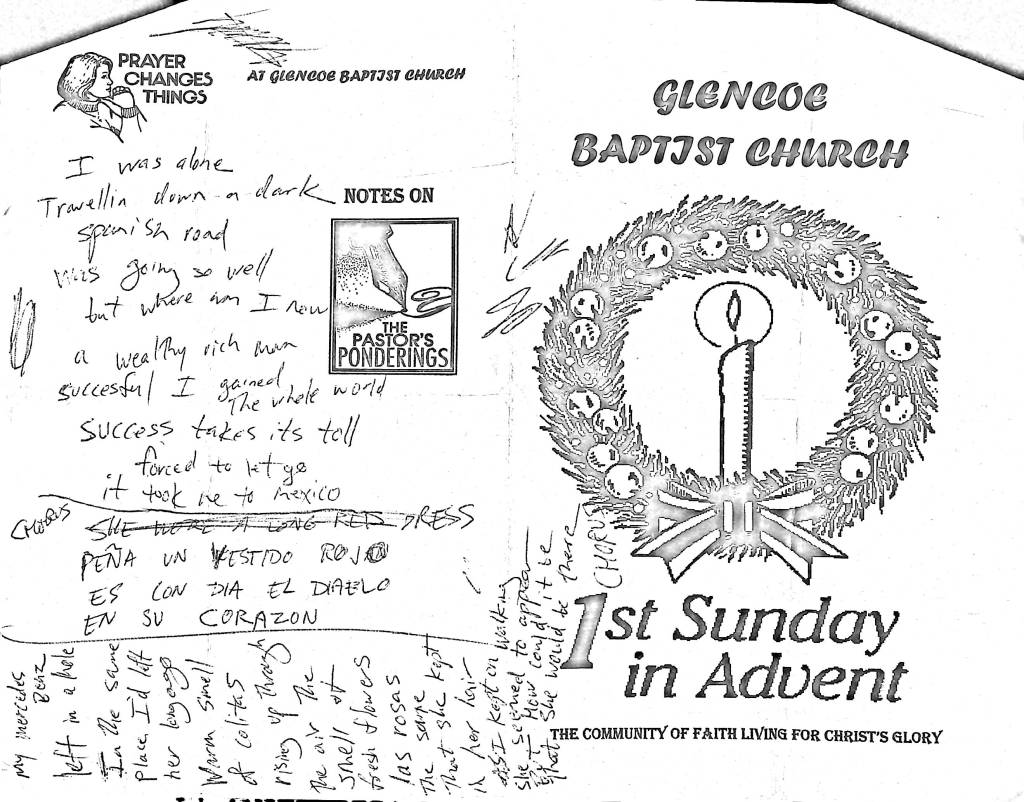 PRAYER
CHANGES
THINGS
AT GLENCOE BAPTIST CHURCH
I was alone
Travellin down a dark
spanish road
was going so well
but where am I now
a wealthy rich man
successful I gained
The whole world
success takes its toll
forced to let go
it took me to mexico
NOTES ON
THE
PASTOR'S
PONDERINGS
CHORUS
SHE WORE A LONG RED DRESS
PEÑA UN VESTIDO ROJO
ES CON DIA EL DIAELO
EN SU CORAZON
my mercedes
Benz
left in a hole
In the same
place I'd left
her long ago
Warm smell
of colitas
rising up through
the air the
smell of
fresh flowers
las rosas
the same
that she kept
in her hair
as I kept on walking
she seemed to appear
How could it be
that she would be there
CHORUS
GLENCOE
BAPTIST CHURCH
1st Sunday
in Advent
THE COMMUNITY OF FAITH LIVING FOR CHRIST'S GLORY